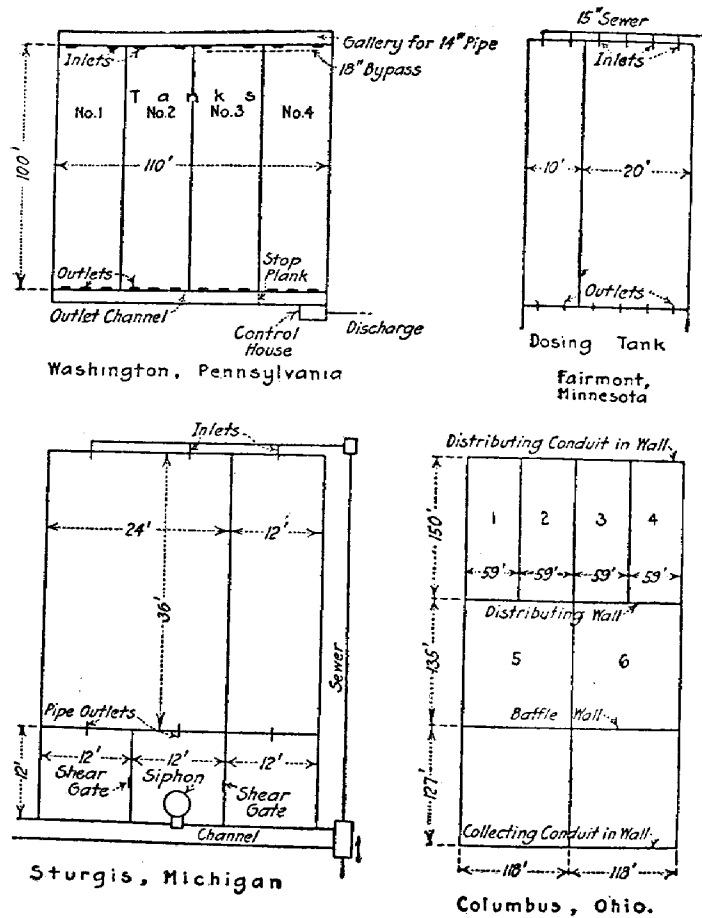 Gallery for 14" Pipe
Inlets
18" Bypass
Tanks
No.1 No.2 No.3 No.4
110'
100'
Outlets
Stop
Plank
Outlet Channel
Control
House
Discharge
Washington, Pennsylvania
15" Sewer
Inlets
10' 20'
Outlets
Dosing Tank
Fairmont,
Minnesota
Inlets
24' 12'
36'
Sewer
Pipe Outlets
12' 12' 12'
12'
Shear
Gate
Siphon
Shear
Gate
Channel
Sturgis, Michigan
Distributing Conduit in Wall
1 2 3 4
150'
59' 59' 59' 59'
Distributing Wall
5 6
135'
Baffle Wall
127'
Collecting Conduit in Wall
118' 118'
Columbus, Ohio.